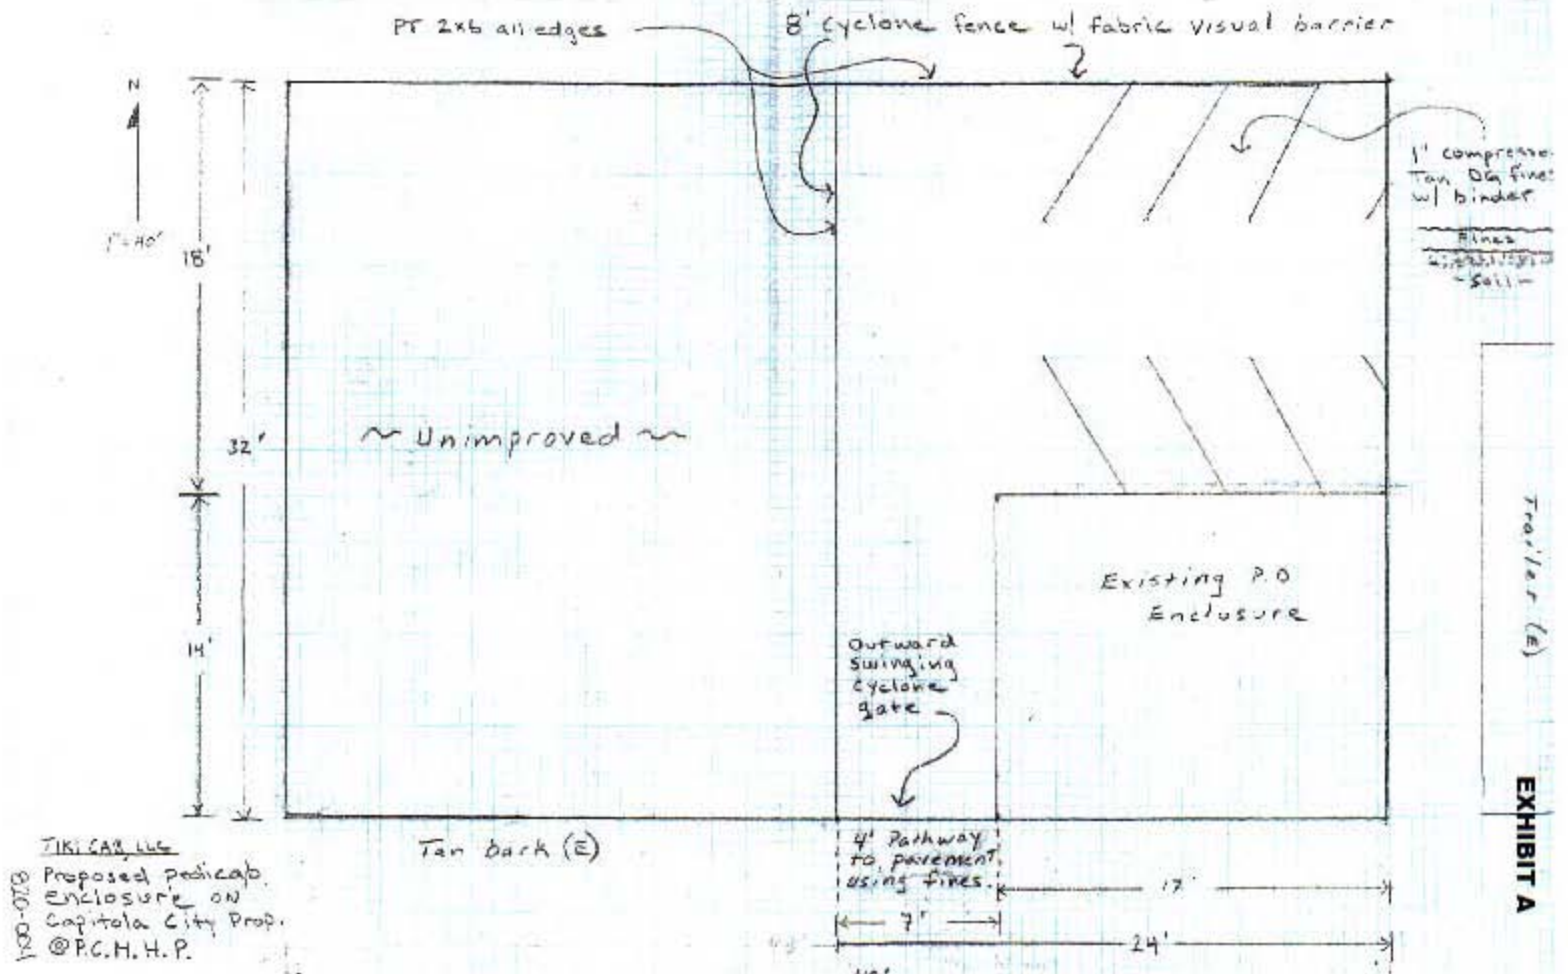 PT 2x6 all edges
8' cyclone fence w/ fabric visual barrier
N
18'
32'
14'
1" compresse
Tan DG fines
w/ binder
Fines
Soil
~ Unimproved ~
Existing P.D
Enclusure
Trailer (E)
Outward
Swinging
cyclone
gate
EXHIBIT A
Tan bark (E)
4' Pathway
to pavement
using fines.
17'
7'
24'
TIKI CAB, LLC
Proposed pedicab
enclosure on
Capitola City Prop.
@ P.C.M.H.P.